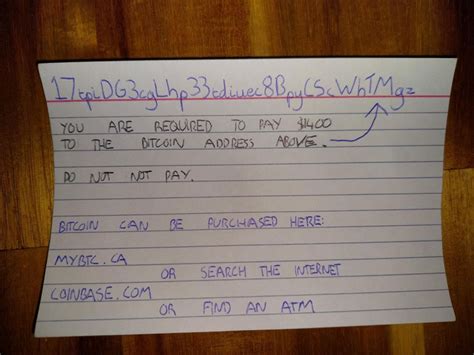 YOU ARE REQUIRED TO PAY $1400
TO THE BITCOIN ADDRESS ABOVE.
DO NOT NOT PAY.
BITCOIN CAN BE PURCHASED HERE:
MYBTC.CA
OR SEARCH THE INTERNET
COINBASE.COM
OR FIND AN ATM